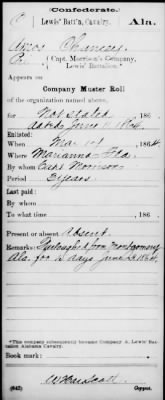 (Confederate.)
C Lewis' Batt'n, Cavalry. Ala.
Amos Chancey
Pvt., Capt. Morrison's Company, Lewis' Battalion.*
Appears on
Company Muster Roll
of the organization named above,
for Not stated, 186 .
dated June 11, 1864
Enlisted:
When Mar 1st, 1864.
Where Marianna Fla.
By whom Capt Morrison
Period 3 years
Last paid:
By whom
To what time , 186 .
Present or absent Absent.
Remarks: Furloughed from Montgomery
Ala. for 15 days June 1864.
*This company subsequently became Company A, Lewis' Battalion Alabama Cavalry.
Book mark:
(642) Copyist.